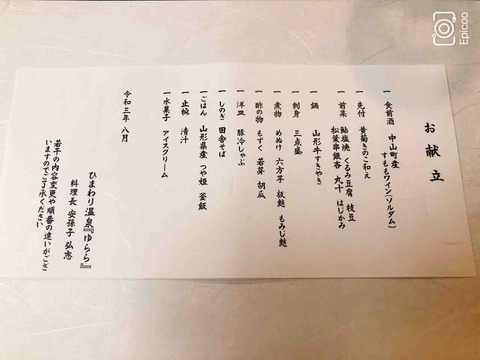 お献立
一 食前酒 中山町産
すももワイン(ソルダム)
一 先付 黄菊きのこ和え
一 前菜 鮎塩焼 くるみ豆腐 枝豆
松葉串銀杏 丸十 はじかみ
一 鍋 山形牛すきやき
一 刺身 三点盛
一 煮物 めぬけ 六方芋 板麩 もみじ麩
一 酢の物 もずく 若芽 胡瓜
一 洋皿 豚冷しゃぶ
一 しのぎ 田舎そば
一 ごはん 山形県産 つや姫 釜飯
一 止椀 清汁
一 水菓子 アイスクリーム
令和三年 八月
ひまわり温泉『ゆらら』
料理長 安孫子 弘志
若干の内容変更や順番の違いがござ
いますのでご了承ください
Epicoo